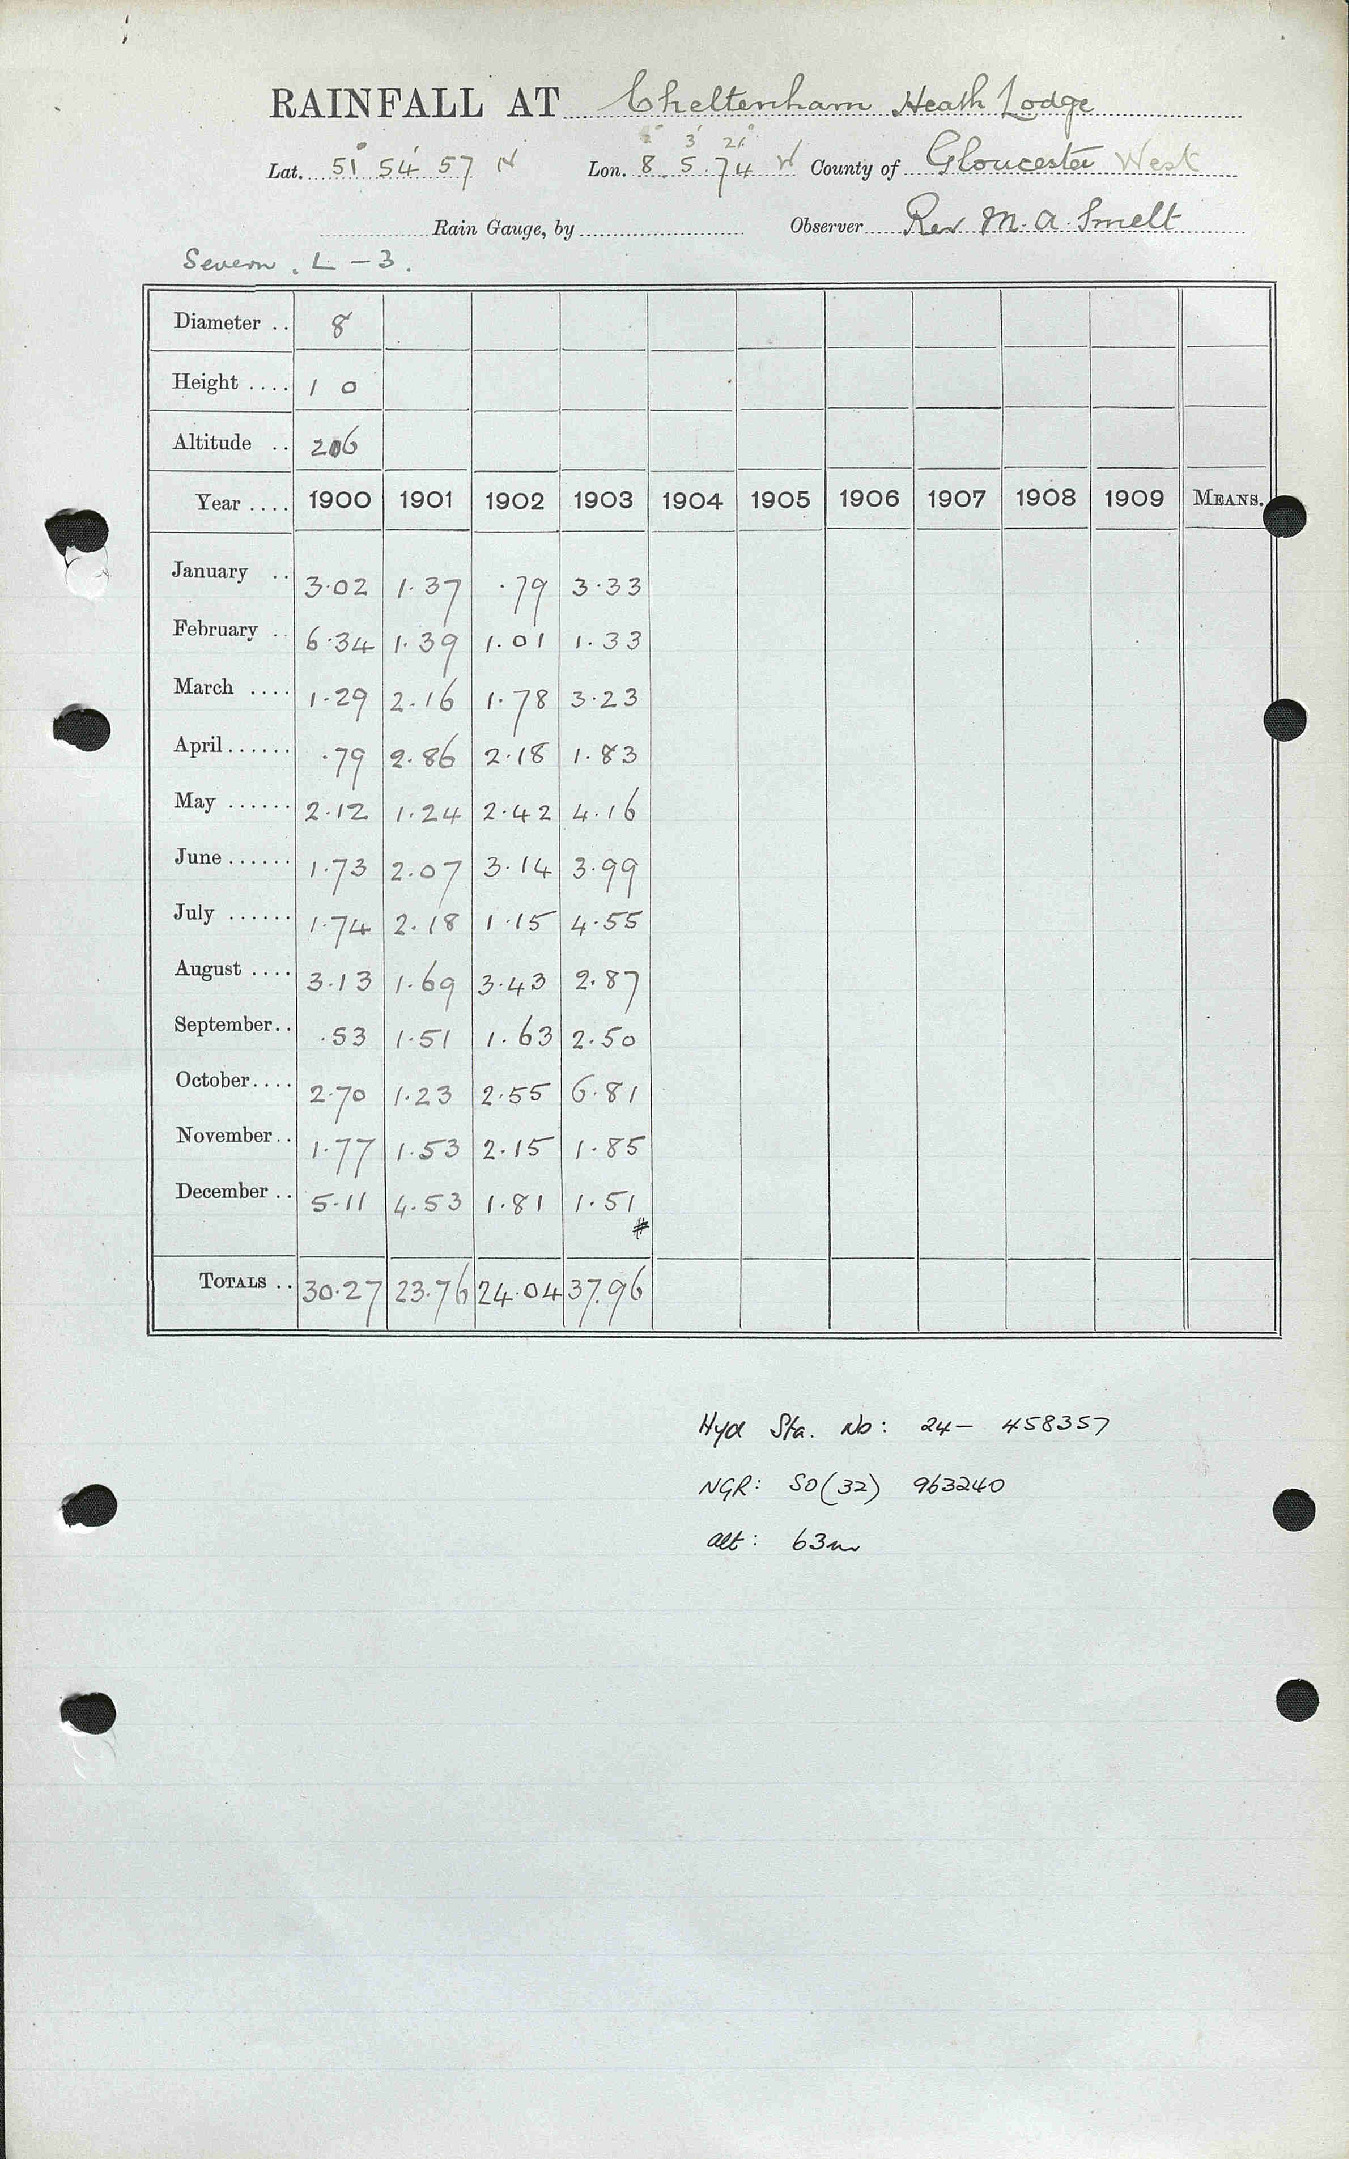 RAINFALL AT Cheltenham Heath Lodge
3' 21"
Lat. 51° 54' 57 N Lon. 8 5.74 W County of Gloucester West
Rain Gauge, by Observer Rev M. A. Smelt
Severn. L - 3.
Diameter .. 8
Height .... 1 0
Altitude .. 206
Year .... 1900 1901 1902 1903 1904 1905 1906 1907 1908 1909 MEANS.
January .. 3.02 1.37 .79 3.33
February .. 6.34 1.39 1.01 1.33
March .... 1.29 2.16 1.78 3.23
April...... .79 2.86 2.18 1.83
May ...... 2.12 1.24 2.42 4.16
June...... 1.73 2.07 3.14 3.99
July ...... 1.74 2.18 1.15 4.55
August .... 3.13 1.69 3.43 2.87
September.. .53 1.51 1.63 2.50
October.... 2.70 1.23 2.55 6.81
November.. 1.77 1.53 2.15 1.85
December .. 5.11 4.53 1.81 1.51
#
TOTALS .. 30.27 23.76 24.04 37.96
Hyd Sta. No: 24- 458357
NGR: SO(32) 963240
alt: 63m